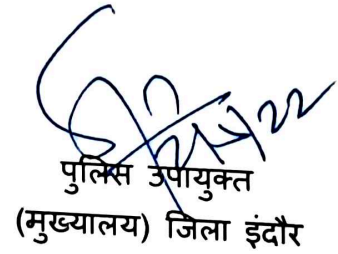 पुलिस उपायुक्त
(मुख्यालय) जिला इंदौर